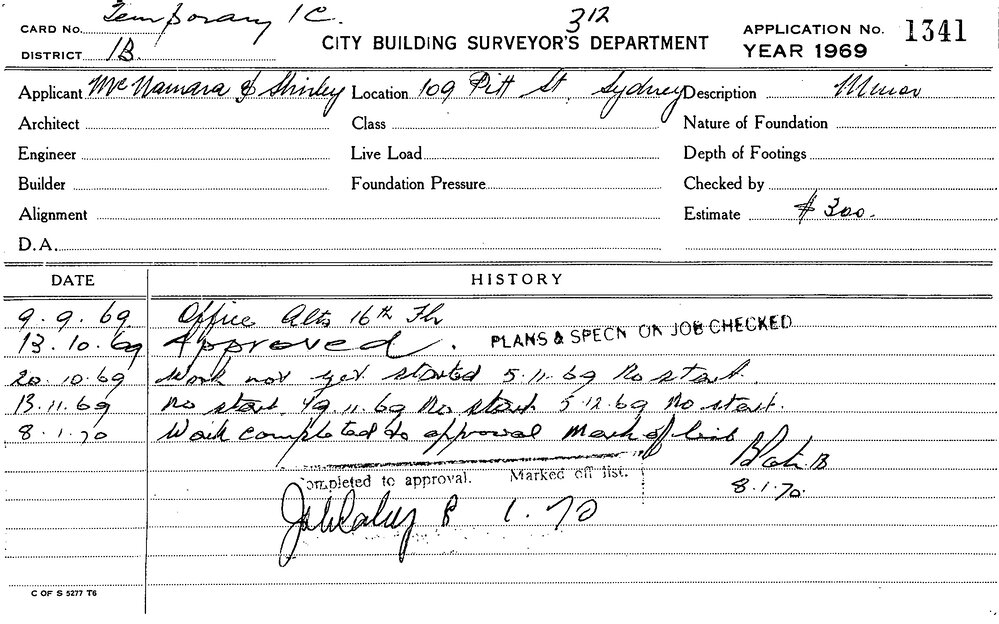 CARD No. Temporary 1C.
312
CITY BUILDING SURVEYOR'S DEPARTMENT
APPLICATION No. 1341
DISTRICT 1B.
YEAR 1969
Applicant McNamara & Shirley Location 109 Pitt St. Sydney Description Minor
Architect Class Nature of Foundation
Engineer Live Load Depth of Footings
Builder Foundation Pressure Checked by
Alignment Estimate $ 300.
D.A.
DATE HISTORY
9.9.69 Office Alts 16th Flr
13.10.69 Approved. PLANS & SPECN ON JOB CHECKED
20.10.69 Work not yet started 5.11.69 No start.
13.11.69 No start. 19.11.69 No start 5.12.69 No start.
8.1.70 Work completed to approval Mark off list
8.1.70.
Completed to approval. Marked off list.
8 1.70
C OF S 5277 T6